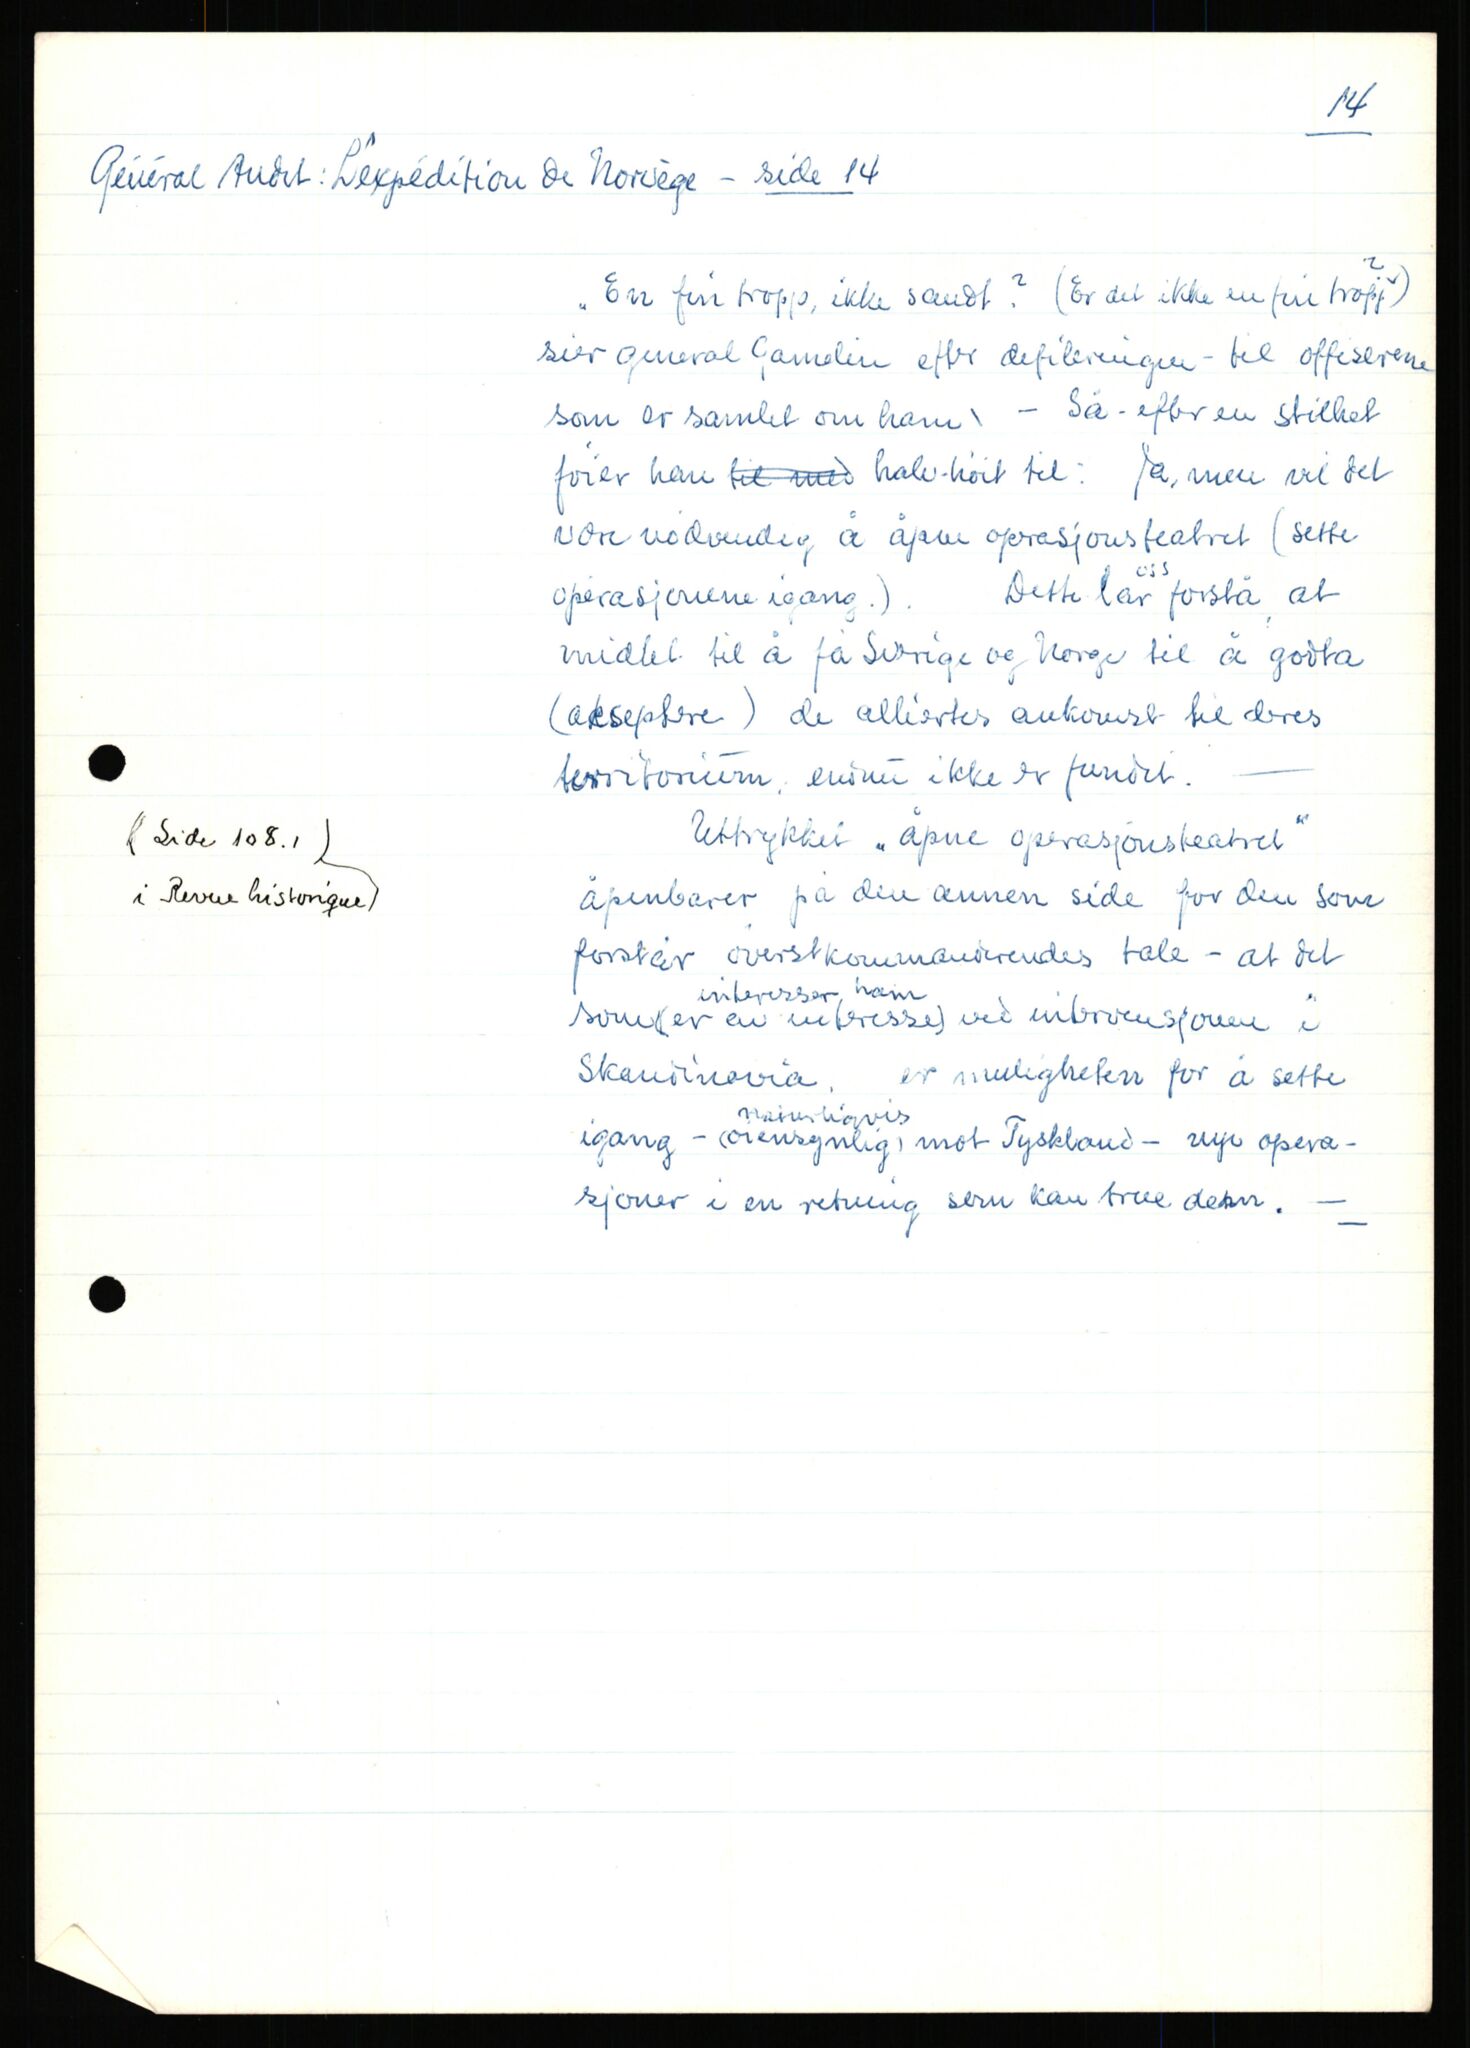 14
Général Audet: L'expédition de Norvège - side 14
„En fin tropp, ikke sandt? (Er det ikke en fin tropp?)
sier general Gamelin efter defileringen - til offiserene
som er samlet om ham. - Så - efter en stilhet
föier han til med halv-höit til: Ja, men vil det
være nödvendig å åpne operasjonsteatret (sette
operasjonene igang.). Dette lar oss forstå, at
midlet til å få Sverige og Norge til å godta
(akseptere) de alliertes ankomst til deres
territorium, endnu ikke er fundet. —
(Side 108.,)
i Revue historique)
Uttrykket „åpne operasjonsteatret"
åpenbarer på den annen side for den som
forstår överstkommanderendes tale - at det
interesser ham
som (er en interesse) ved intervensjonen i
Skandinavia, er muligheten for å sette
naturligvis
igang - (öiensynlig) mot Tyskland - nye opera-
sjoner i en retning som kan true dem. —